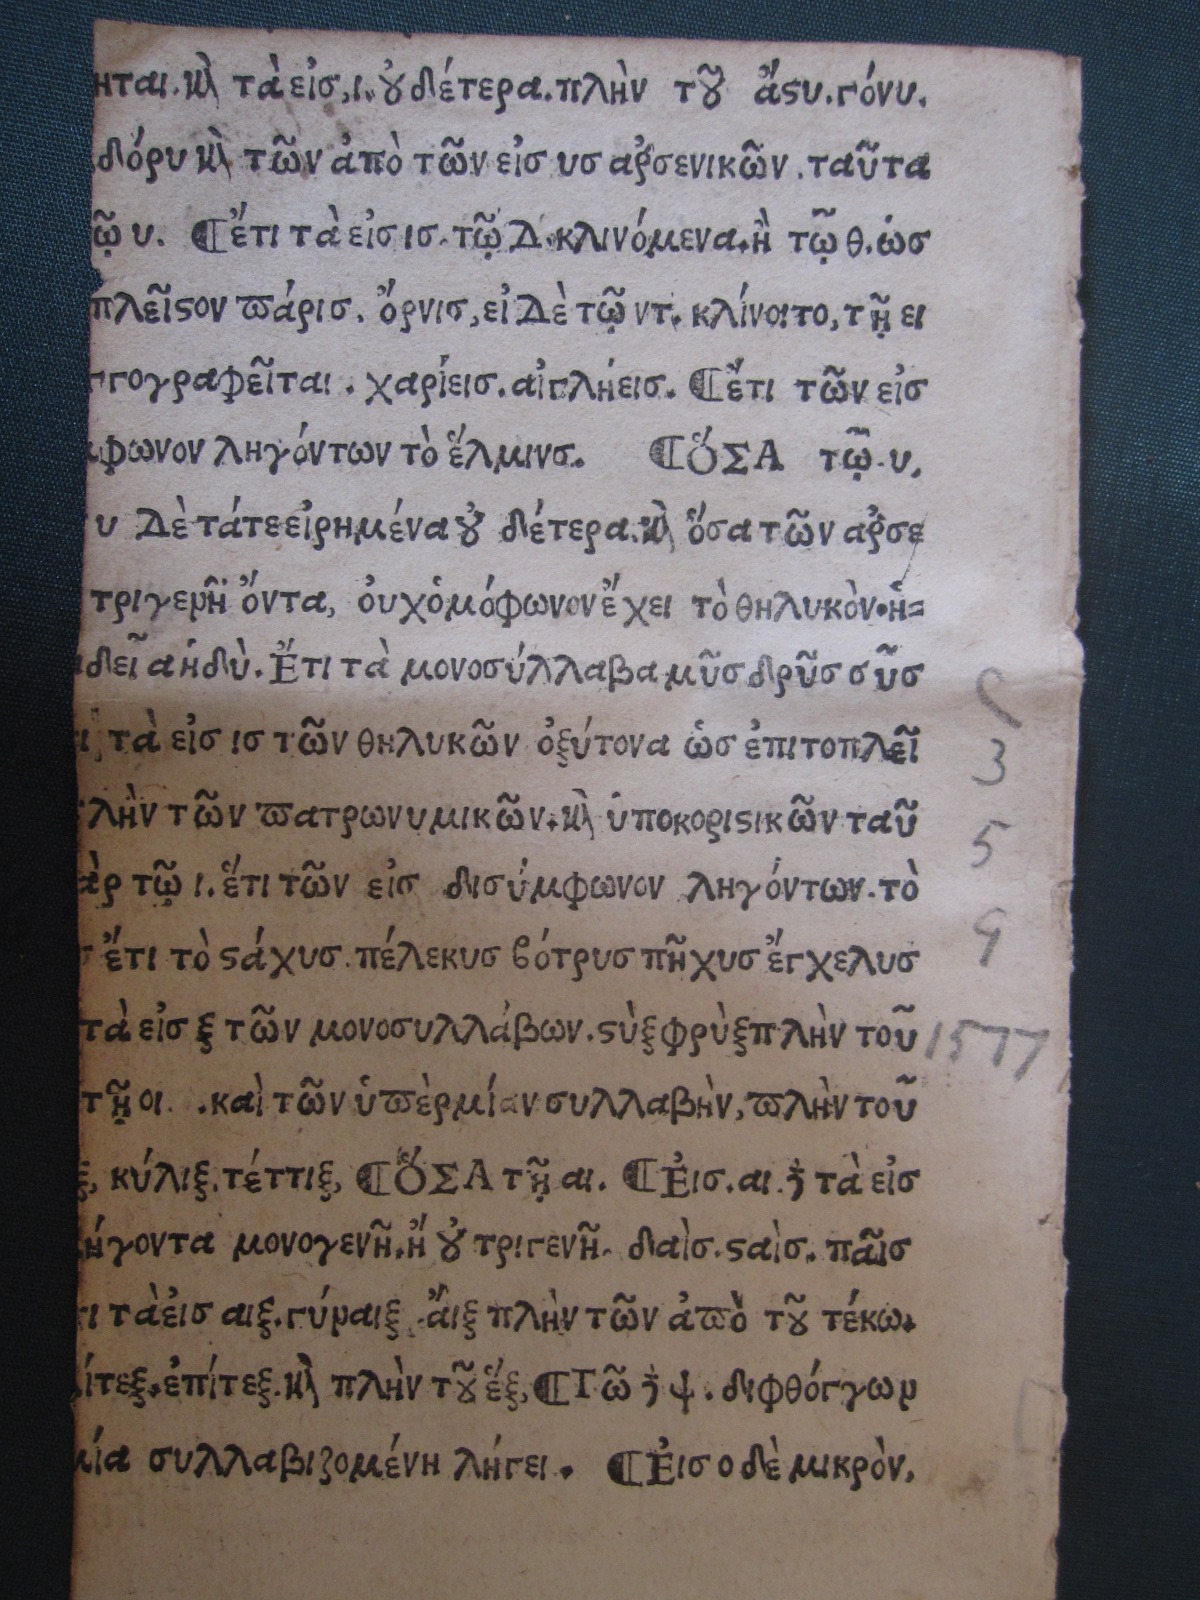 ηται. καὶ τὰ εἰσ, ι. οὐδέτερα. πλὴν τοῦ ἄϛυ. γόνυ.
δόρυ καὶ τῶν ἀπὸ τῶν εἰσ υσ αῤσενικῶν. ταῦτα
ῷ υ. ¶ ἔτι τὰ εἰσ ισ. τῷ Δ. κλινόμενα. ἢ τῷ θ. ὡσ
πλεῖϛον ϖάρισ. ὄρνισ, εἰ Δὲ τῷ ντ. κλίνοιτο, τῇ ει
γογραφεῖται. χαρίεισ. αἰγλήεισ. ¶ ἔτι τῶν εἰσ
φωνον ληγόντων τὸ ἕλμινσ. ¶ ὍΣΑ τῷ. υ.
υ Δὲ τάτε εἰρημένα οὐδέτερα. καὶ ὅσα τῶν αῤσε
τριγενῆ ὄντα, ὀυχ ὁμόφωνον ἔχει τὸ θηλυκὸν. ἡ=
δεῖα ἡδὺ. Ἔτι τὰ μονοσύλλαβα μῦσ δρῦσ σῦσ
τὰ εἰσ ισ τῶν θηλυκῶν ὀξύτονα ὡσ ἐπιτοπλεῖ
λὴν τῶν ϖατρωνυμικῶν. καὶ ὑποκοριϛικῶν ταῦ
ὰρ τῷ ι. ἔτι τῶν εἰσ δισύμφωνον ληγόντων. τὸ
ἔτι τὸ ϛάχυσ. πέλεκυσ βότρυσ πῆχυσ ἔγχελυσ
τὰ εἰσ ξ τῶν μονοσυλλάβων. ϛὺξ φρὺξ πλὴν τοῦ
τῇ οι. .καὶ τῶν ὑϖὲρ μίαν συλλαβὴν, ϖλὴν τοῦ
ξ, κύλιξ. τέττιξ, ¶ ὍΣΑ τῇ αι. ¶ Ἐισ. αι. ϟ τὰ εἰσ
ήγοντα μονογενῆ. ἤ οὐ τριγενῆ. δαὶσ. ϛαὶσ. παῖσ
τι τὰ εἰσ αιξ. γύναιξ. ἄιξ πλὴν τῶν ἀϖὸ τοῦ τέκω.
ίτεξ. ἐπίτεξ. καὶ πλὴν τοῦ ἕξ, ¶ Τῶ ϟ ψ. διφθόγγων
μία συλλαβιζομένη λήγει. ¶ Ἐισ ο δὲ μικρὸν,
3
5
9
1577